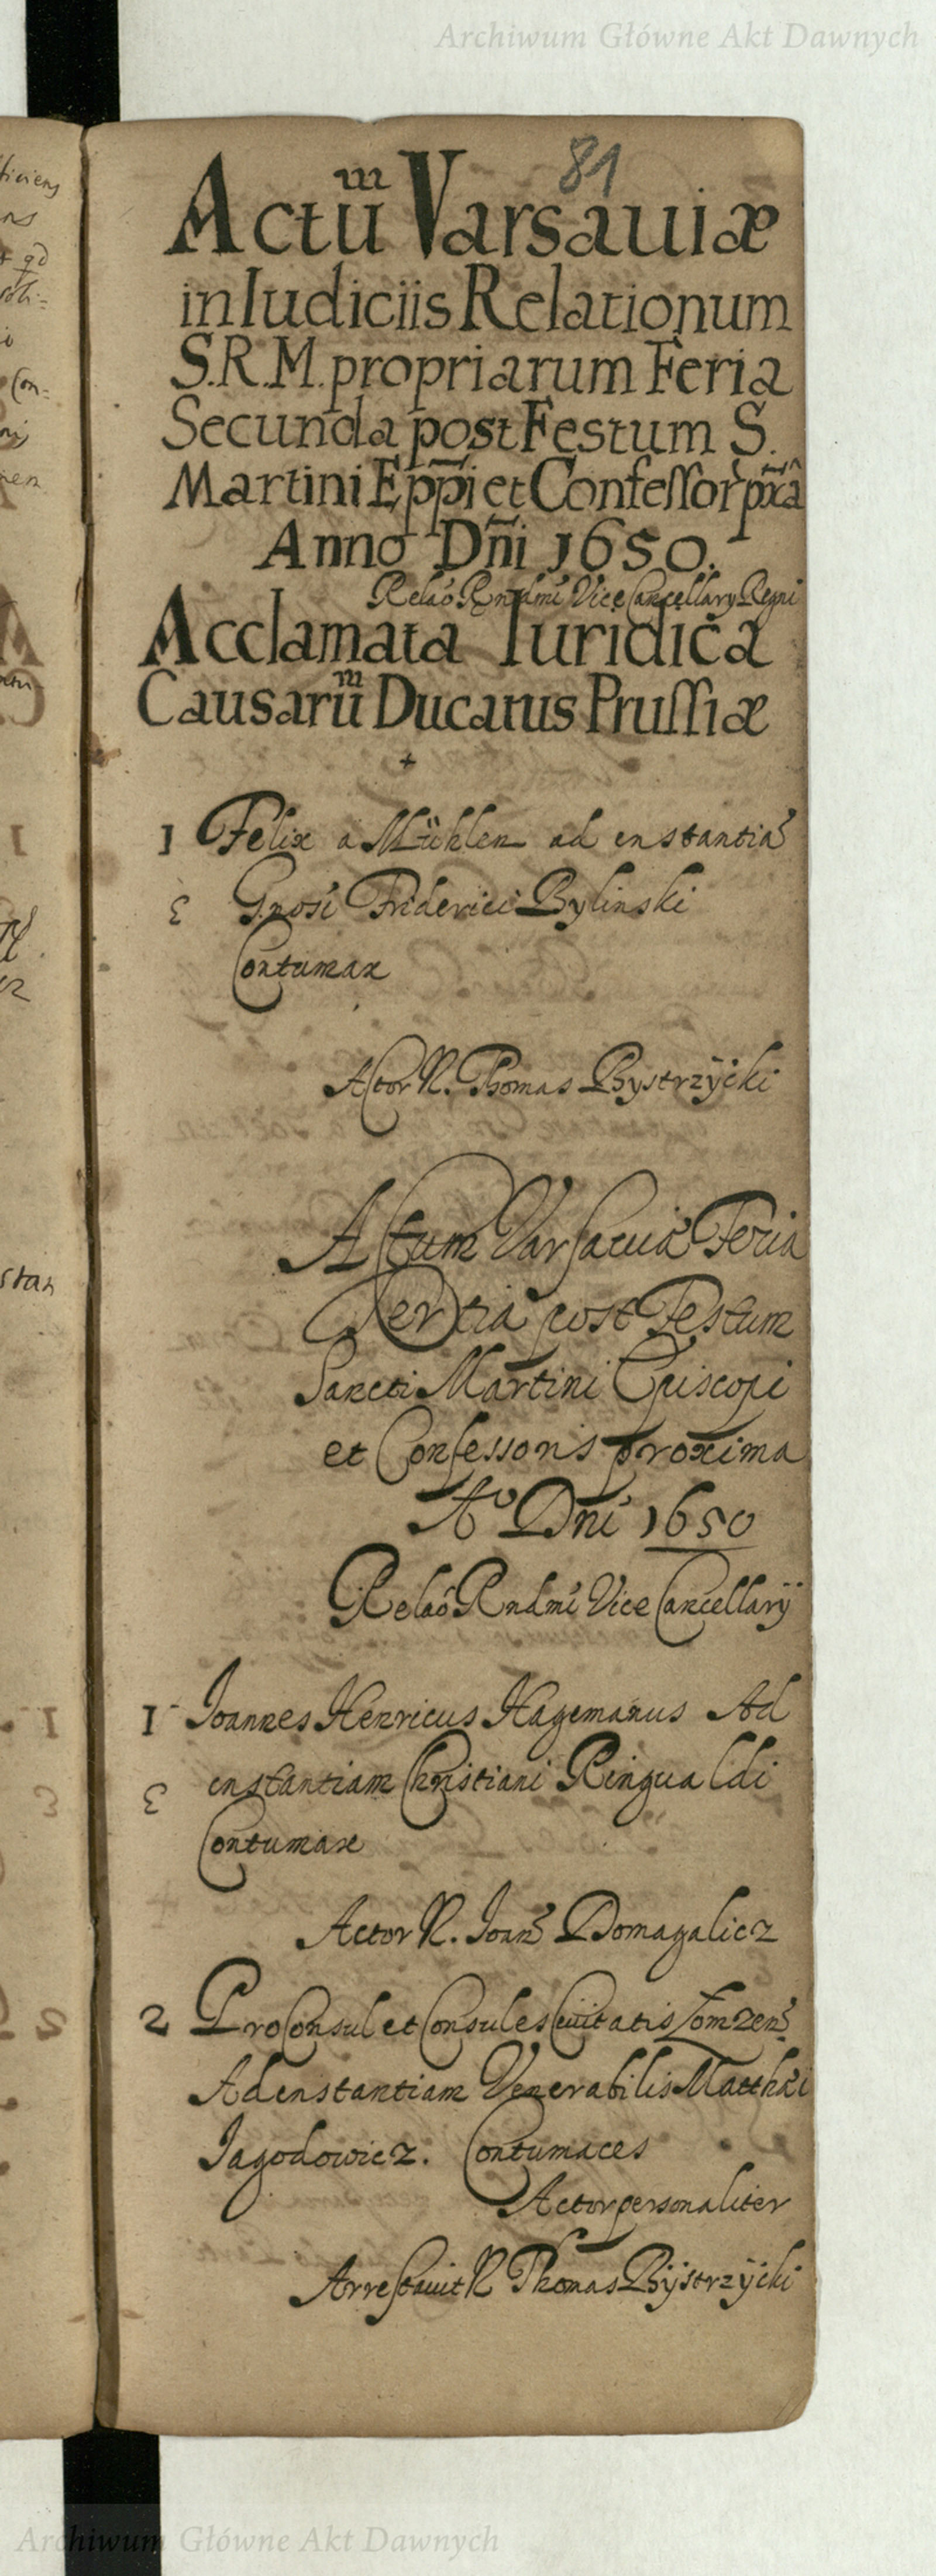 Archiwum Główne Akt Dawnych
81
Actũm Varsauiæ
in Iudiciis Relationum
S.R.M. propriarum Feria
Secunda post Festum S.
Martini Epp̃i et Confessor pr̃xâ
Anno Dñi 1650.
Relaõ Rndmi Vice Cancellary Regni
Acclamata Iuridica
Causarũm Ducatus Prussiæ
+
1 Felix a Mühlen ad instantiã
3 Gnosi Friderici Bylinski
Contumax
Actor N. Thomas Bystrzÿcki
Actum Varsaviæ Feria
Tertia post Festum
Sancti Martini Episcopi
et Confessoris proxima
Aº Dni 1650
Relaõ Rndmi Vice Cancellarÿ
1 Joannes Henricus Hagemanus Ad
3 instantiam Christiani Ringualdi
Contumax
Actor N. Joañ Domagalicz
2 ProConsul et Consules Civitatis Lomzeñ
Ad instantiam Venerabilis Matthæi
Jagodowicz. Contumaces
Actor personaliter
Arrestavit N Thomas Bÿstrzÿcki
Archiwum Główne Akt Dawnych